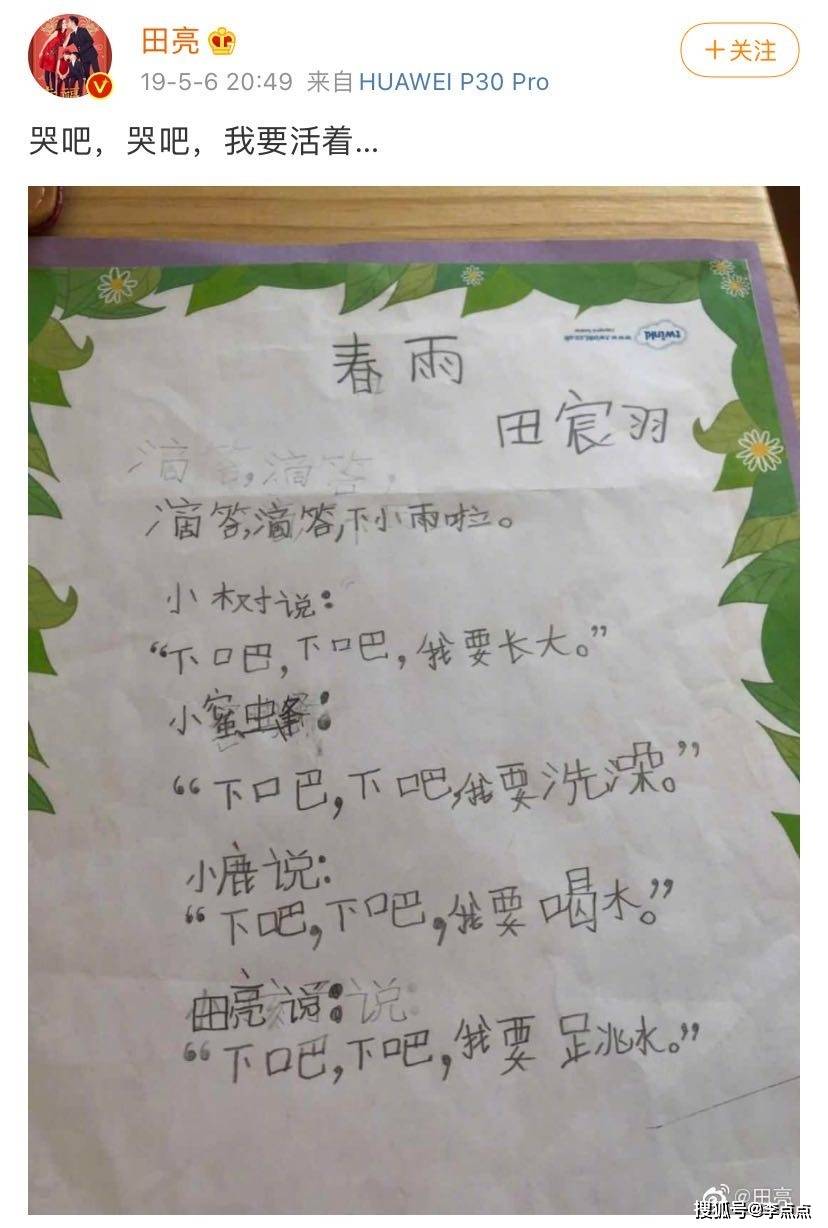 田亮
19-5-6 20:49 来自 HUAWEI P30 Pro
+关注
哭吧，哭吧，我要活着...
twinkl
www.twinkl.co.uk
春雨
田宸羽
滴答,滴答,
滴答,滴答,下小雨啦。
小树说:
“下吧,下吧,我要长大。”
小蜜蜂:
“下吧,下吧,我要洗澡。”
小鹿说:
“下吧,下吧,我要喝水。”
田亮说:说:
“下吧,下吧,我要跳水。”
@田亮
搜狐号@李点点